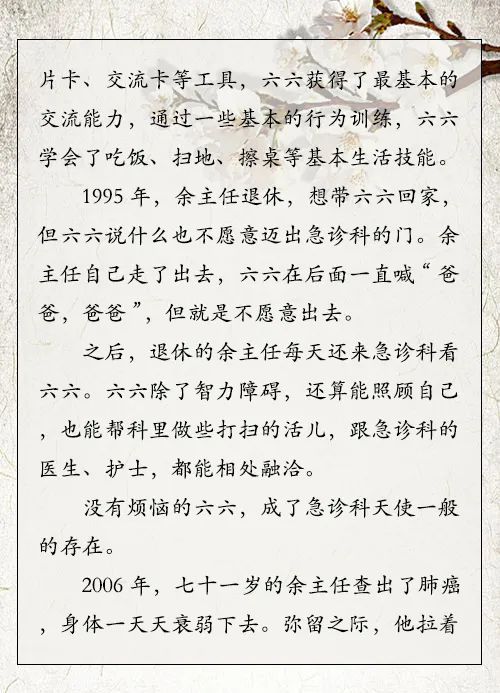 片卡、交流卡等工具，六六获得了最基本的
交流能力，通过一些基本的行为训练，六六
学会了吃饭、扫地、擦桌等基本生活技能。
1995 年，余主任退休，想带六六回家，
但六六说什么也不愿意迈出急诊科的门。余
主任自己走了出去，六六在后面一直喊“爸
爸，爸爸”，但就是不愿意出去。
之后，退休的余主任每天还来急诊科看
六六。六六除了智力障碍，还算能照顾自己
，也能帮科里做些打扫的活儿，跟急诊科的
医生、护士，都能相处融洽。
没有烦恼的六六，成了急诊科天使一般
的存在。
2006 年，七十一岁的余主任查出了肺癌
，身体一天天衰弱下去。弥留之际，他拉着